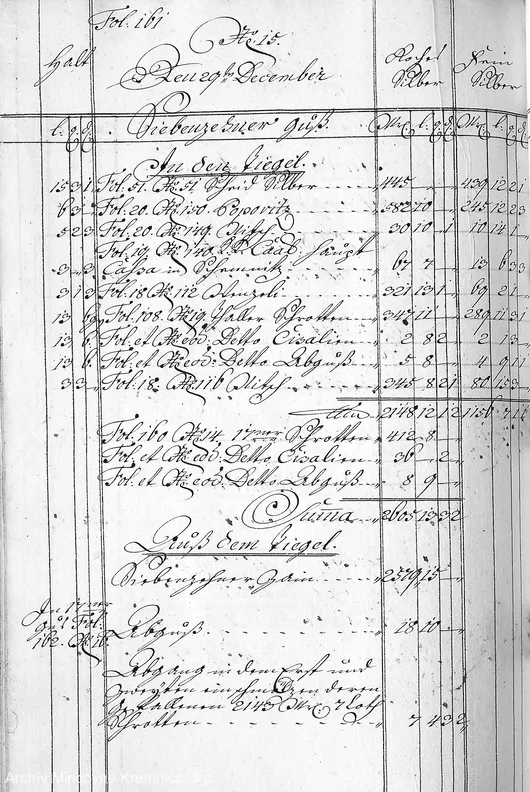 Fol. 161
No. 15.
Halt
Den 29ten December
Roches Silber
Fein Silber
l. q. d.
Siebenzehner Guß.
Mk. l. q. d. Mk. l. q. d.
In den Tiegel.
15 3 1 Fol. 51. No. 51 Scheid Silber 445 — 439 12 2 1
6 3 Fol. 20. No. 150. Popovitz 582 10 — 245 12 2 3
5 2 3 Fol. 20. No. 149 30 10 1 10 14 1
Fol. 19. No. 140 Haupt
3 3 Cassa in Schemnitz 67 7 — 13 6 3 3
3 1 3 Fol. 18 No. 112 Wenzeli 321 13 1 69 2 1
13 6 Fol. 108. No. 19 Haller Schrotten 347 11 289 11 3 1
13 6 Fol. et No. eod. Detto Cisalien 2 8 2 2 13
13 6 Fol. et No. eod. Detto Abguß 5 8 4 9 1 1
3 3 Fol. 18. No. 116 345 8 2 1 80 15 3
2148 12 1 2 1156 7 1
Fol. 160 No. 14. 17ner Schrotten 412 8
Fol. et No. eod. Detto Cisalien 36 2
Fol. et No. eod. Detto Abguß 8 9
Suma 2605 13 3 2
Auß dem Tiegel.
Siebenzehner Zain 2579 15
In 17ner
guß Fol.
162. No. 16.
Abguß 18 10
Abgang in dem Erst und
zweyten einschmelzen deren
gefallenen 2145 Mk. 7 Loth
Schrotten 7 4 3 2
Archiv Mincovne Kremnica, š. p.